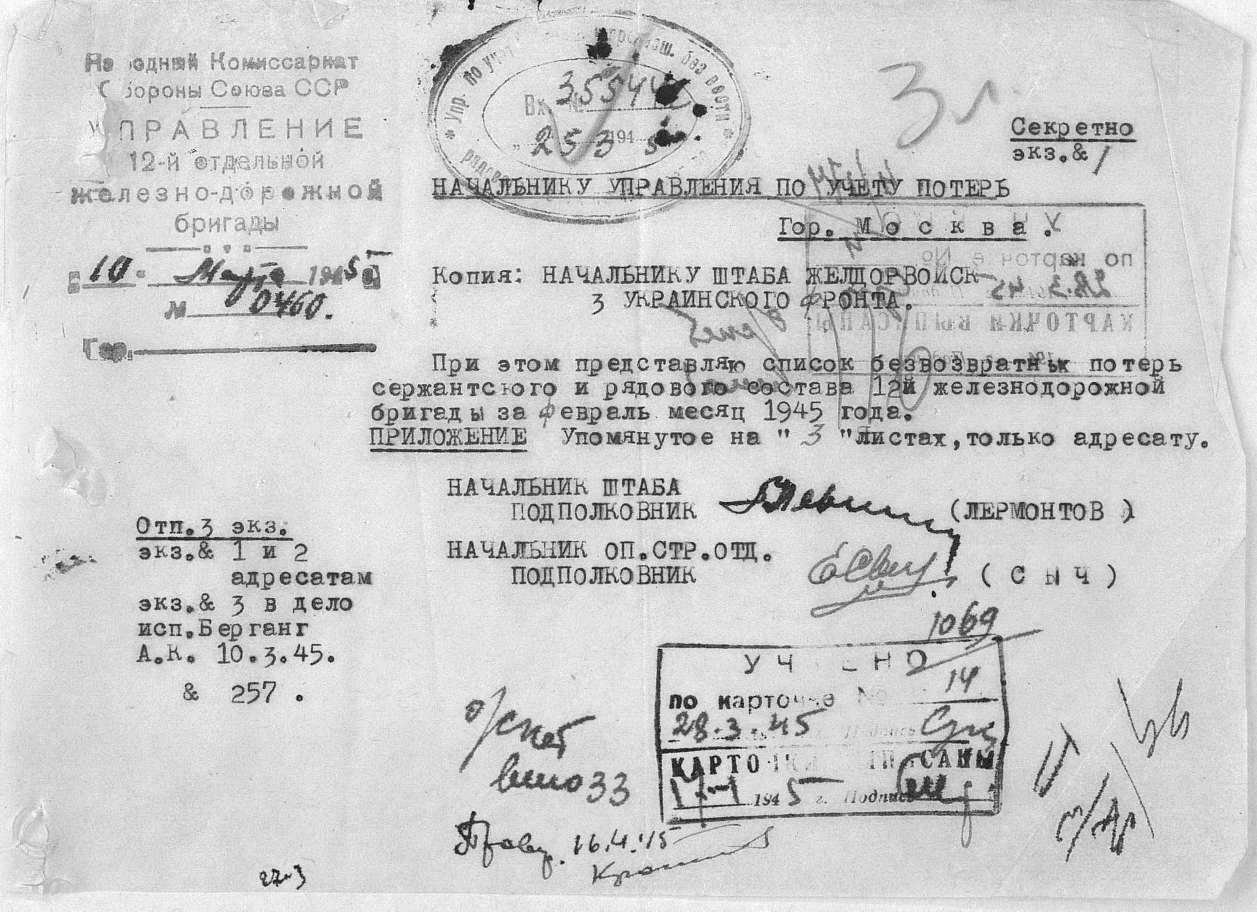 Народный Комиссариат
Обороны Союза ССР
УПРАВЛЕНИЕ
12-й отдельной
железно-дорожной
бригады
"10" Марта 1945 г.
№ 0460.
Гор.
Упр. по учету без вести
Вх. № 35544
" 25 3 194 5
3 л.
Секретно
экз.& 1
НАЧАЛЬНИКУ УПРАВЛЕНИЯ ПО УЧЕТУ ПОТЕРЬ
Гор. Москва.
Копия: НАЧАЛЬНИКУ ШТАБА ЖЕЛДОРВОЙСК
3 УКРАИНСКОГО ФРОНТА.
по карточке №
28.3.45
КАРТОЧКИ ВЫПИСАНЫ
При этом представляю список безвозвратных потерь
сержантского и рядового состава 12й железнодорожной
бригады за февраль месяц 1945 года.
ПРИЛОЖЕНИЕ Упомянутое на " 3 "листах,только адресату.
НАЧАЛЬНИК ШТАБА
ПОДПОЛКОВНИК (ЛЕРМОНТОВ )
НАЧАЛЬНИК ОП.СТР.ОТД.
ПОДПОЛКОВНИК ( СЫЧ )
Отп.3 экз.
экз.& 1 и 2
адресатам
экз.& 3 в дело
исп.Берганг
А.К. 10.3.45.
& 257 .
1069
УЧТЕНО
по карточке № 14
28.3.45
КАРТОЧКИ ВЫПИСАНЫ
1945 г. Подпись
16.4.45
27-3